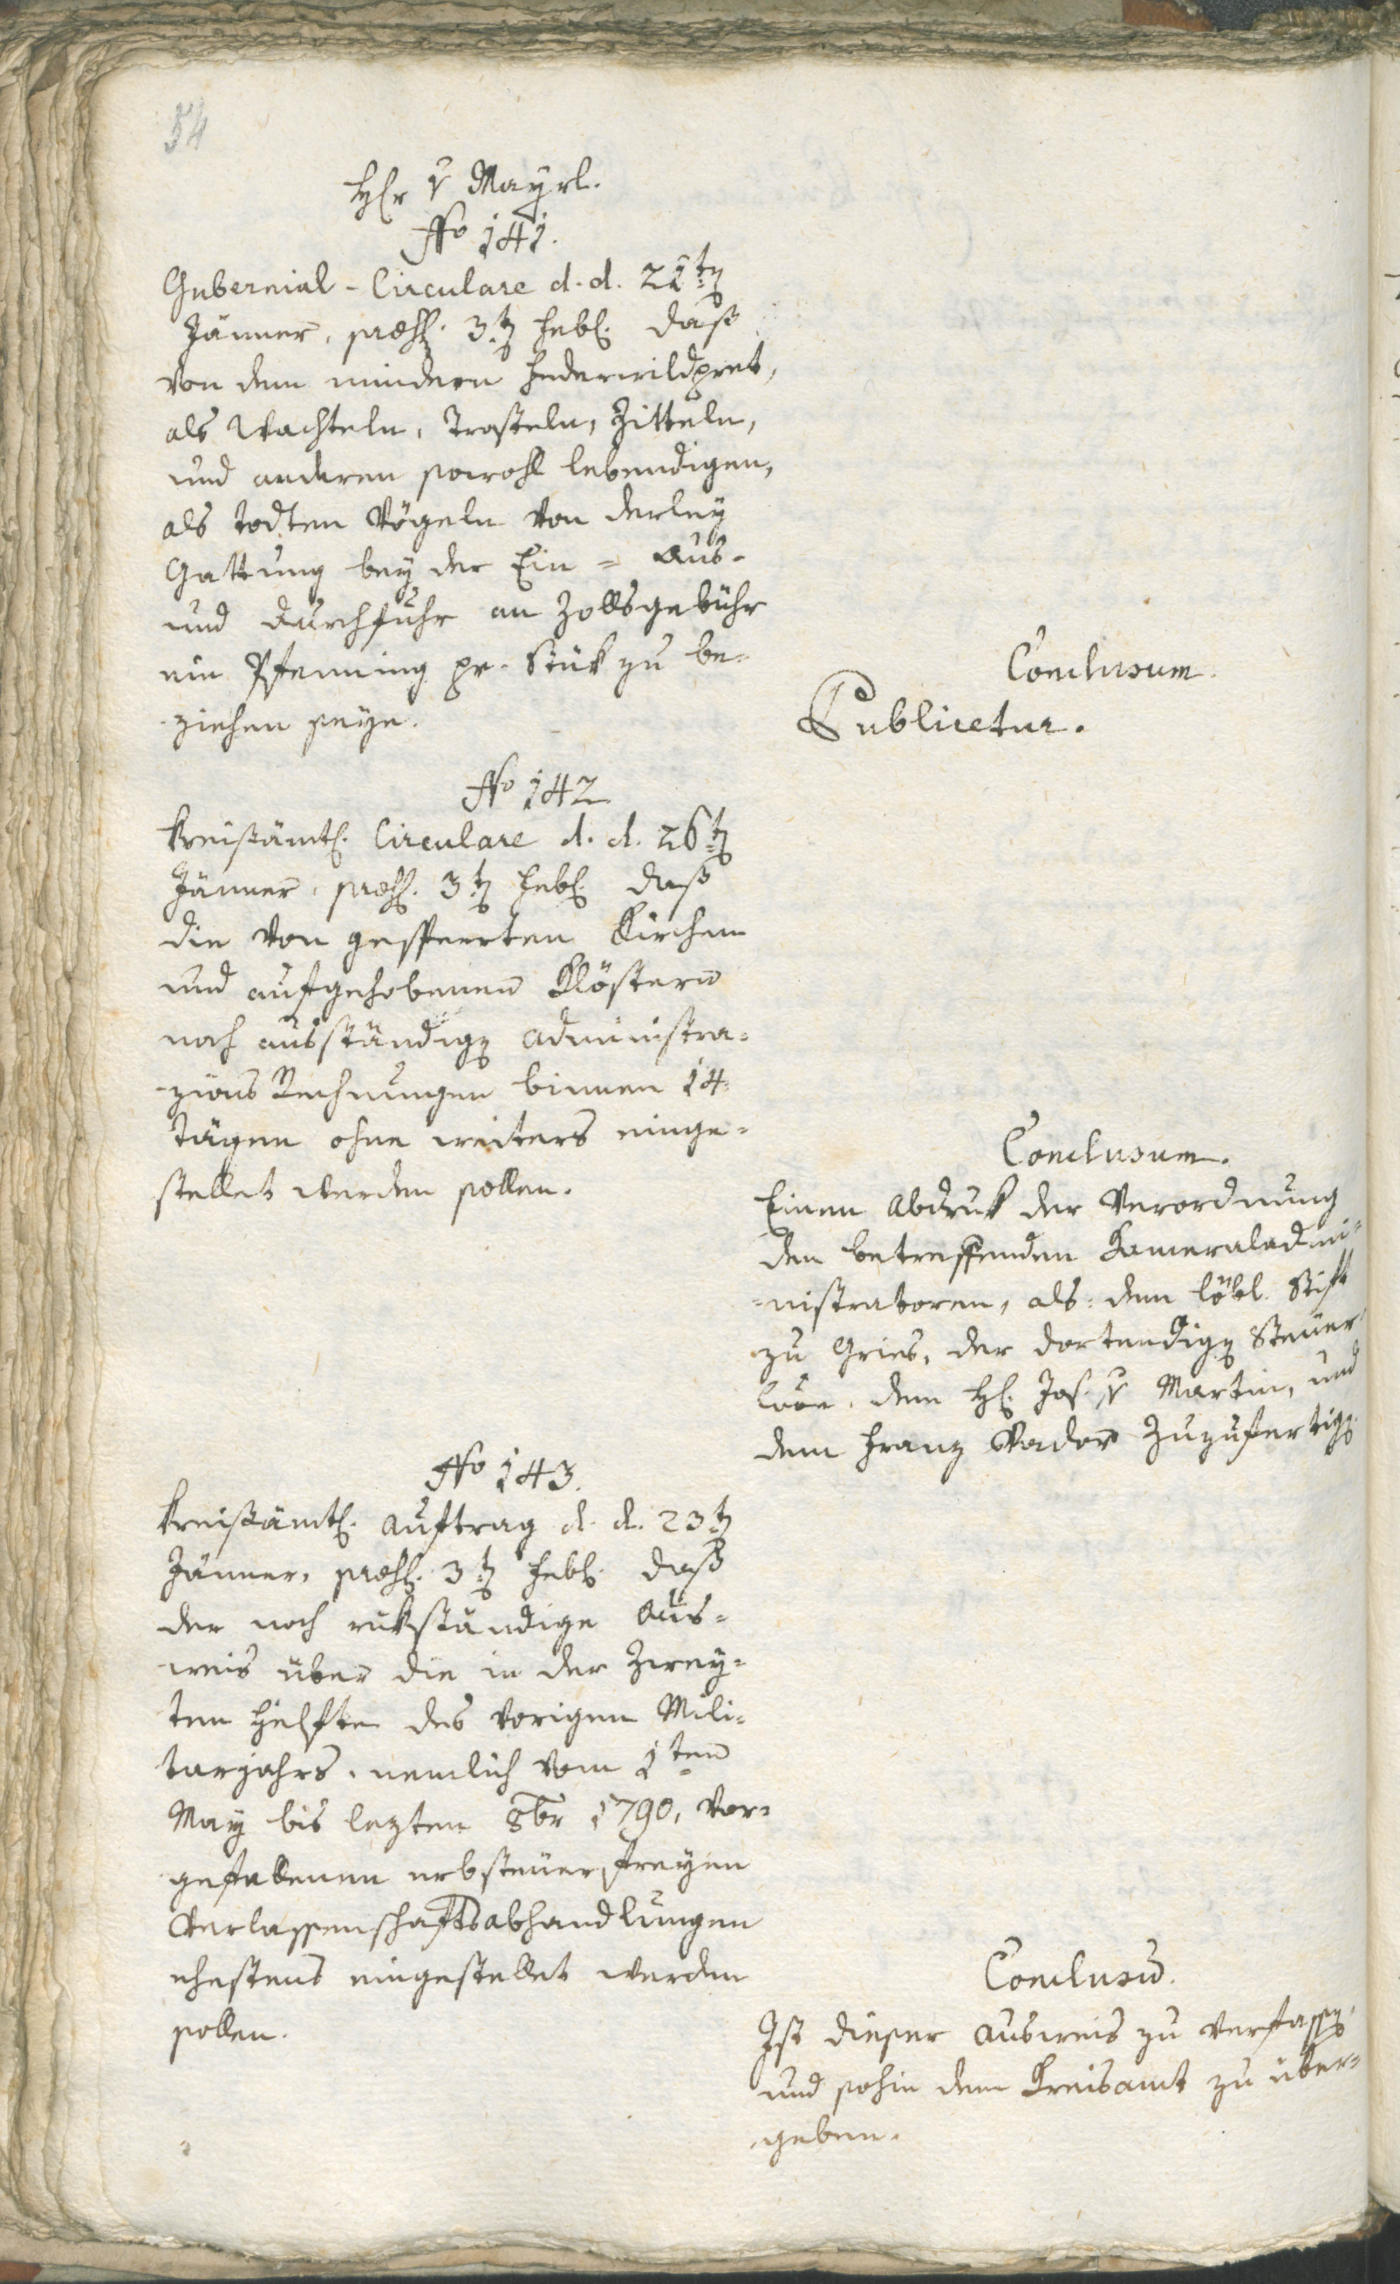 54
Hr v Mayrl.
No 141.
Gubernial-Circulare d. d. 21ten
Jänner, præs. 3ten Feb. daß
von dem mindern Federwildpret,
als Wachteln, Trosteln, Zitteln,
und anderen sowohl lebendigen,
als todten Vögeln von derley
Gattung bey der Ein- Aus-
und Durchfuhr an Zollsgebühr
ein Pfenning pr. Stük zu be-
ziehen seye.
Conclusum.
Publicetur.
No 142
Kreisämtl. Circulare d. d. 26ten
Jänner, præs. 3ten Feb. daß
die von gesperrten Kirchen
und aufgehobenen Klöstern
noch ausständigen Administra-
zions Rechnungen binnen 14
Tägen ohne weiters einge-
stellet werden sollen.
Conclusum.
Einen Abdruk der Verordnung
den betreffenden Kameraladmi-
nistratoren, als: dem löbl. Stift
zu Gries, der dortendigen Steuer
, dem H. Jos. v Martin, und
dem Franz Vador zuzufertigen.
No 143.
Kreisämtl. Auftrag d. d. 23ten
Jänner, præs. 3ten Feb. daß
der noch rükständige Aus-
weis über die in der zwey-
ten Helfte des vorigen Mili-
tarjahrs, nemlich vom 1ten
May bis lezten 8br 1790, vor-
gefallenen erbsteuer freyen
Verlassenschaftsabhandlungen
ehestens eingestellet werden
sollen.
Conclusum.
Ist dieser Ausweis zu verfassen,
und sohin dem Kreisamt zu über-
geben.